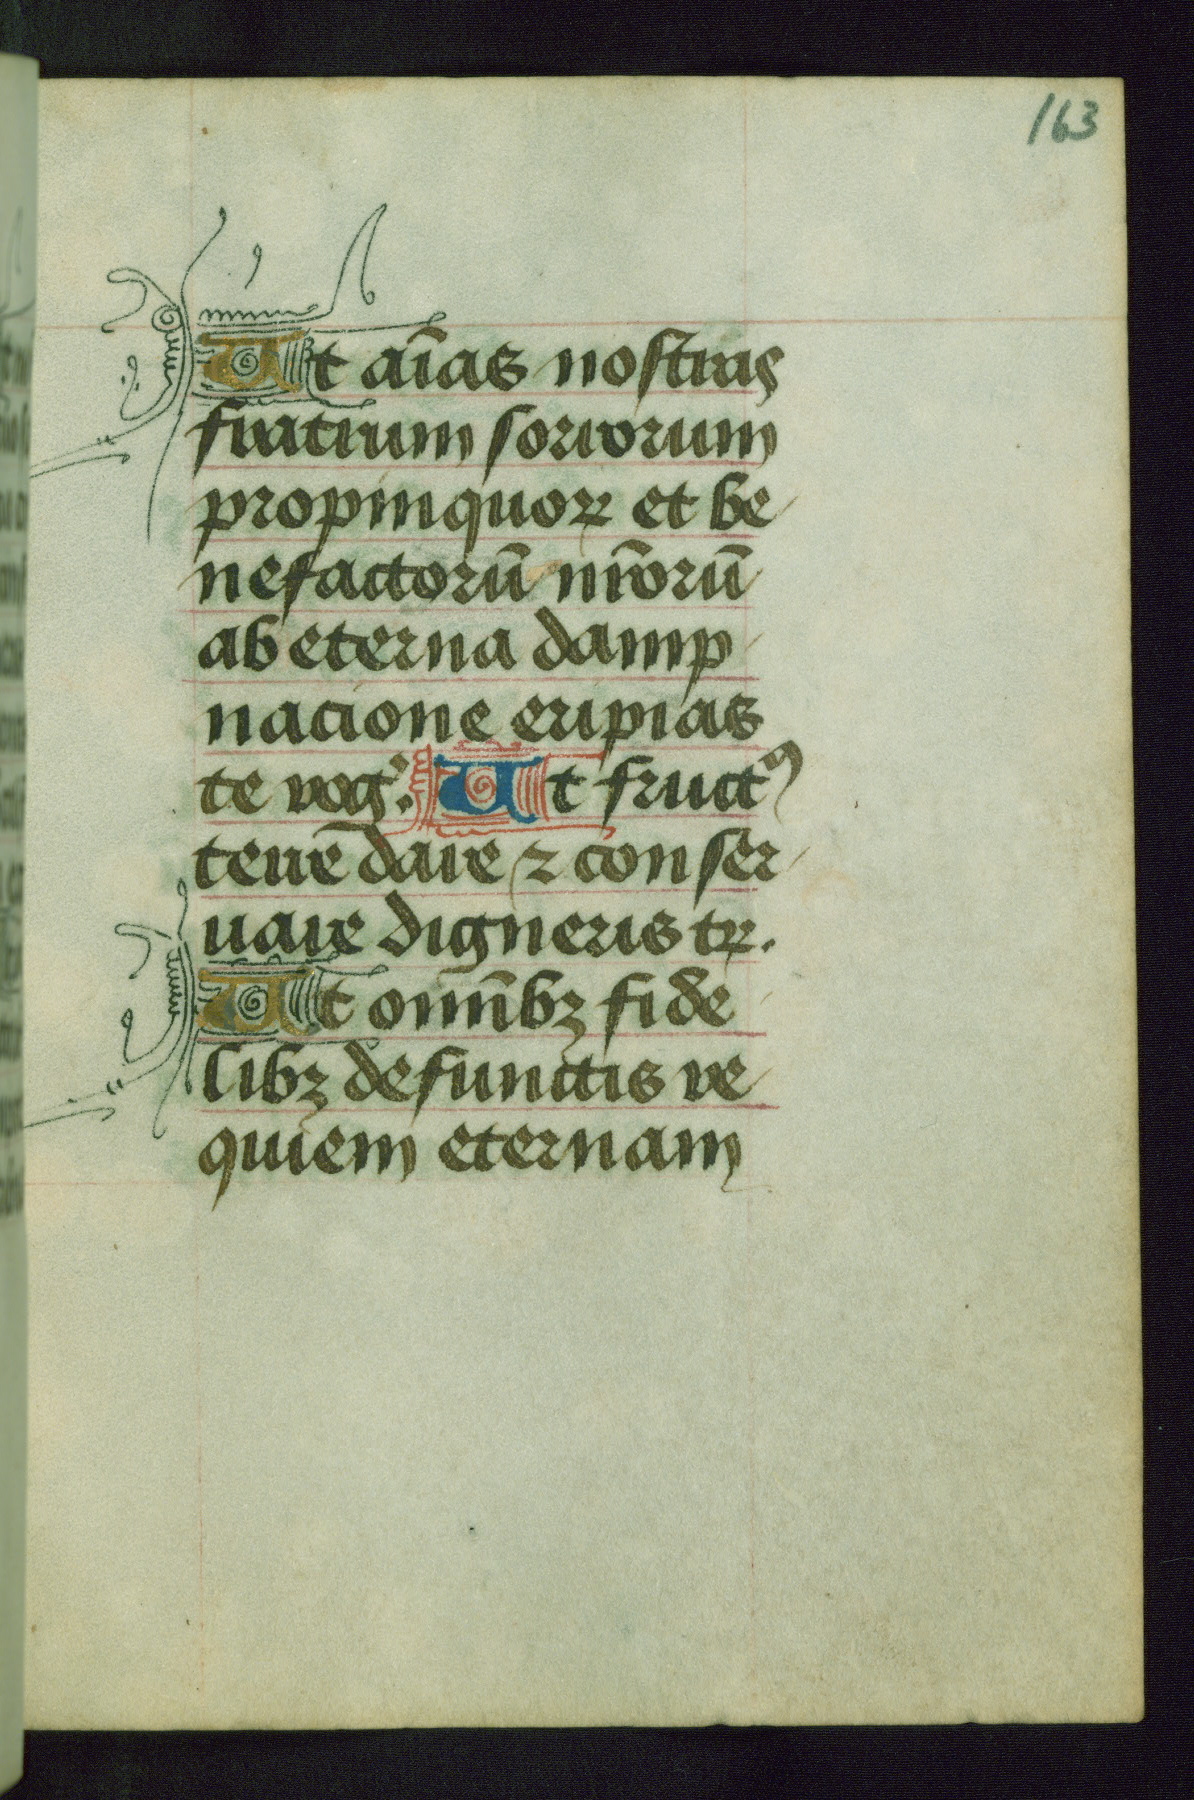 163
Ut aīas nostras
fratrum sororum
propinquoꝝ et be
nefactorū nr̄orū
ab eterna damp
nacione eripias
te rog᷒. Ut fructꝰ
terre dare ⁊ conser
uare digneris tr̄.
Ut omnībꝫ fide
libꝫ defunctis re
quiem eternam